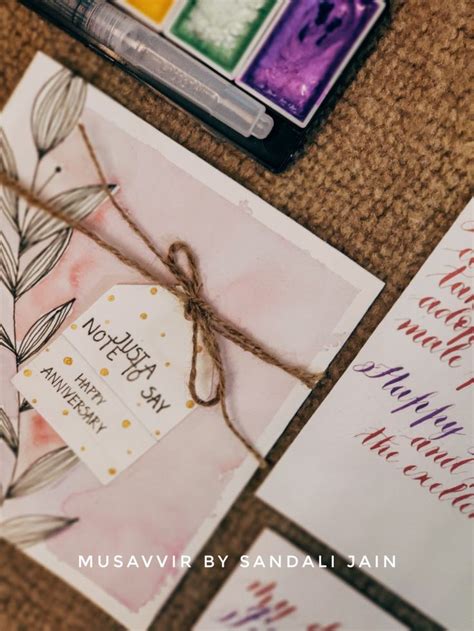 JUST A
NOTE TO SAY
HAPPY
ANNIVERSARY
mate
Happy
and
MUSAVVIR BY SANDALI JAIN
my